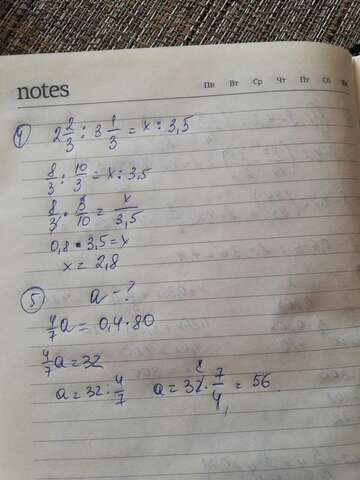 notes Пн Вт Ср Чт Пт Сб Вс
4) 2 2/3 : 3 1/3 = x : 3,5
8/3 : 10/3 = x : 3,5
8/3 · 3/10 = x/3,5
0,8 · 3,5 = x
x = 2,8
5) a - ?
4/7 a = 0,4 · 80
4/7 a = 32
a = 32 : 4/7 a = 32 · 7/4 = 56